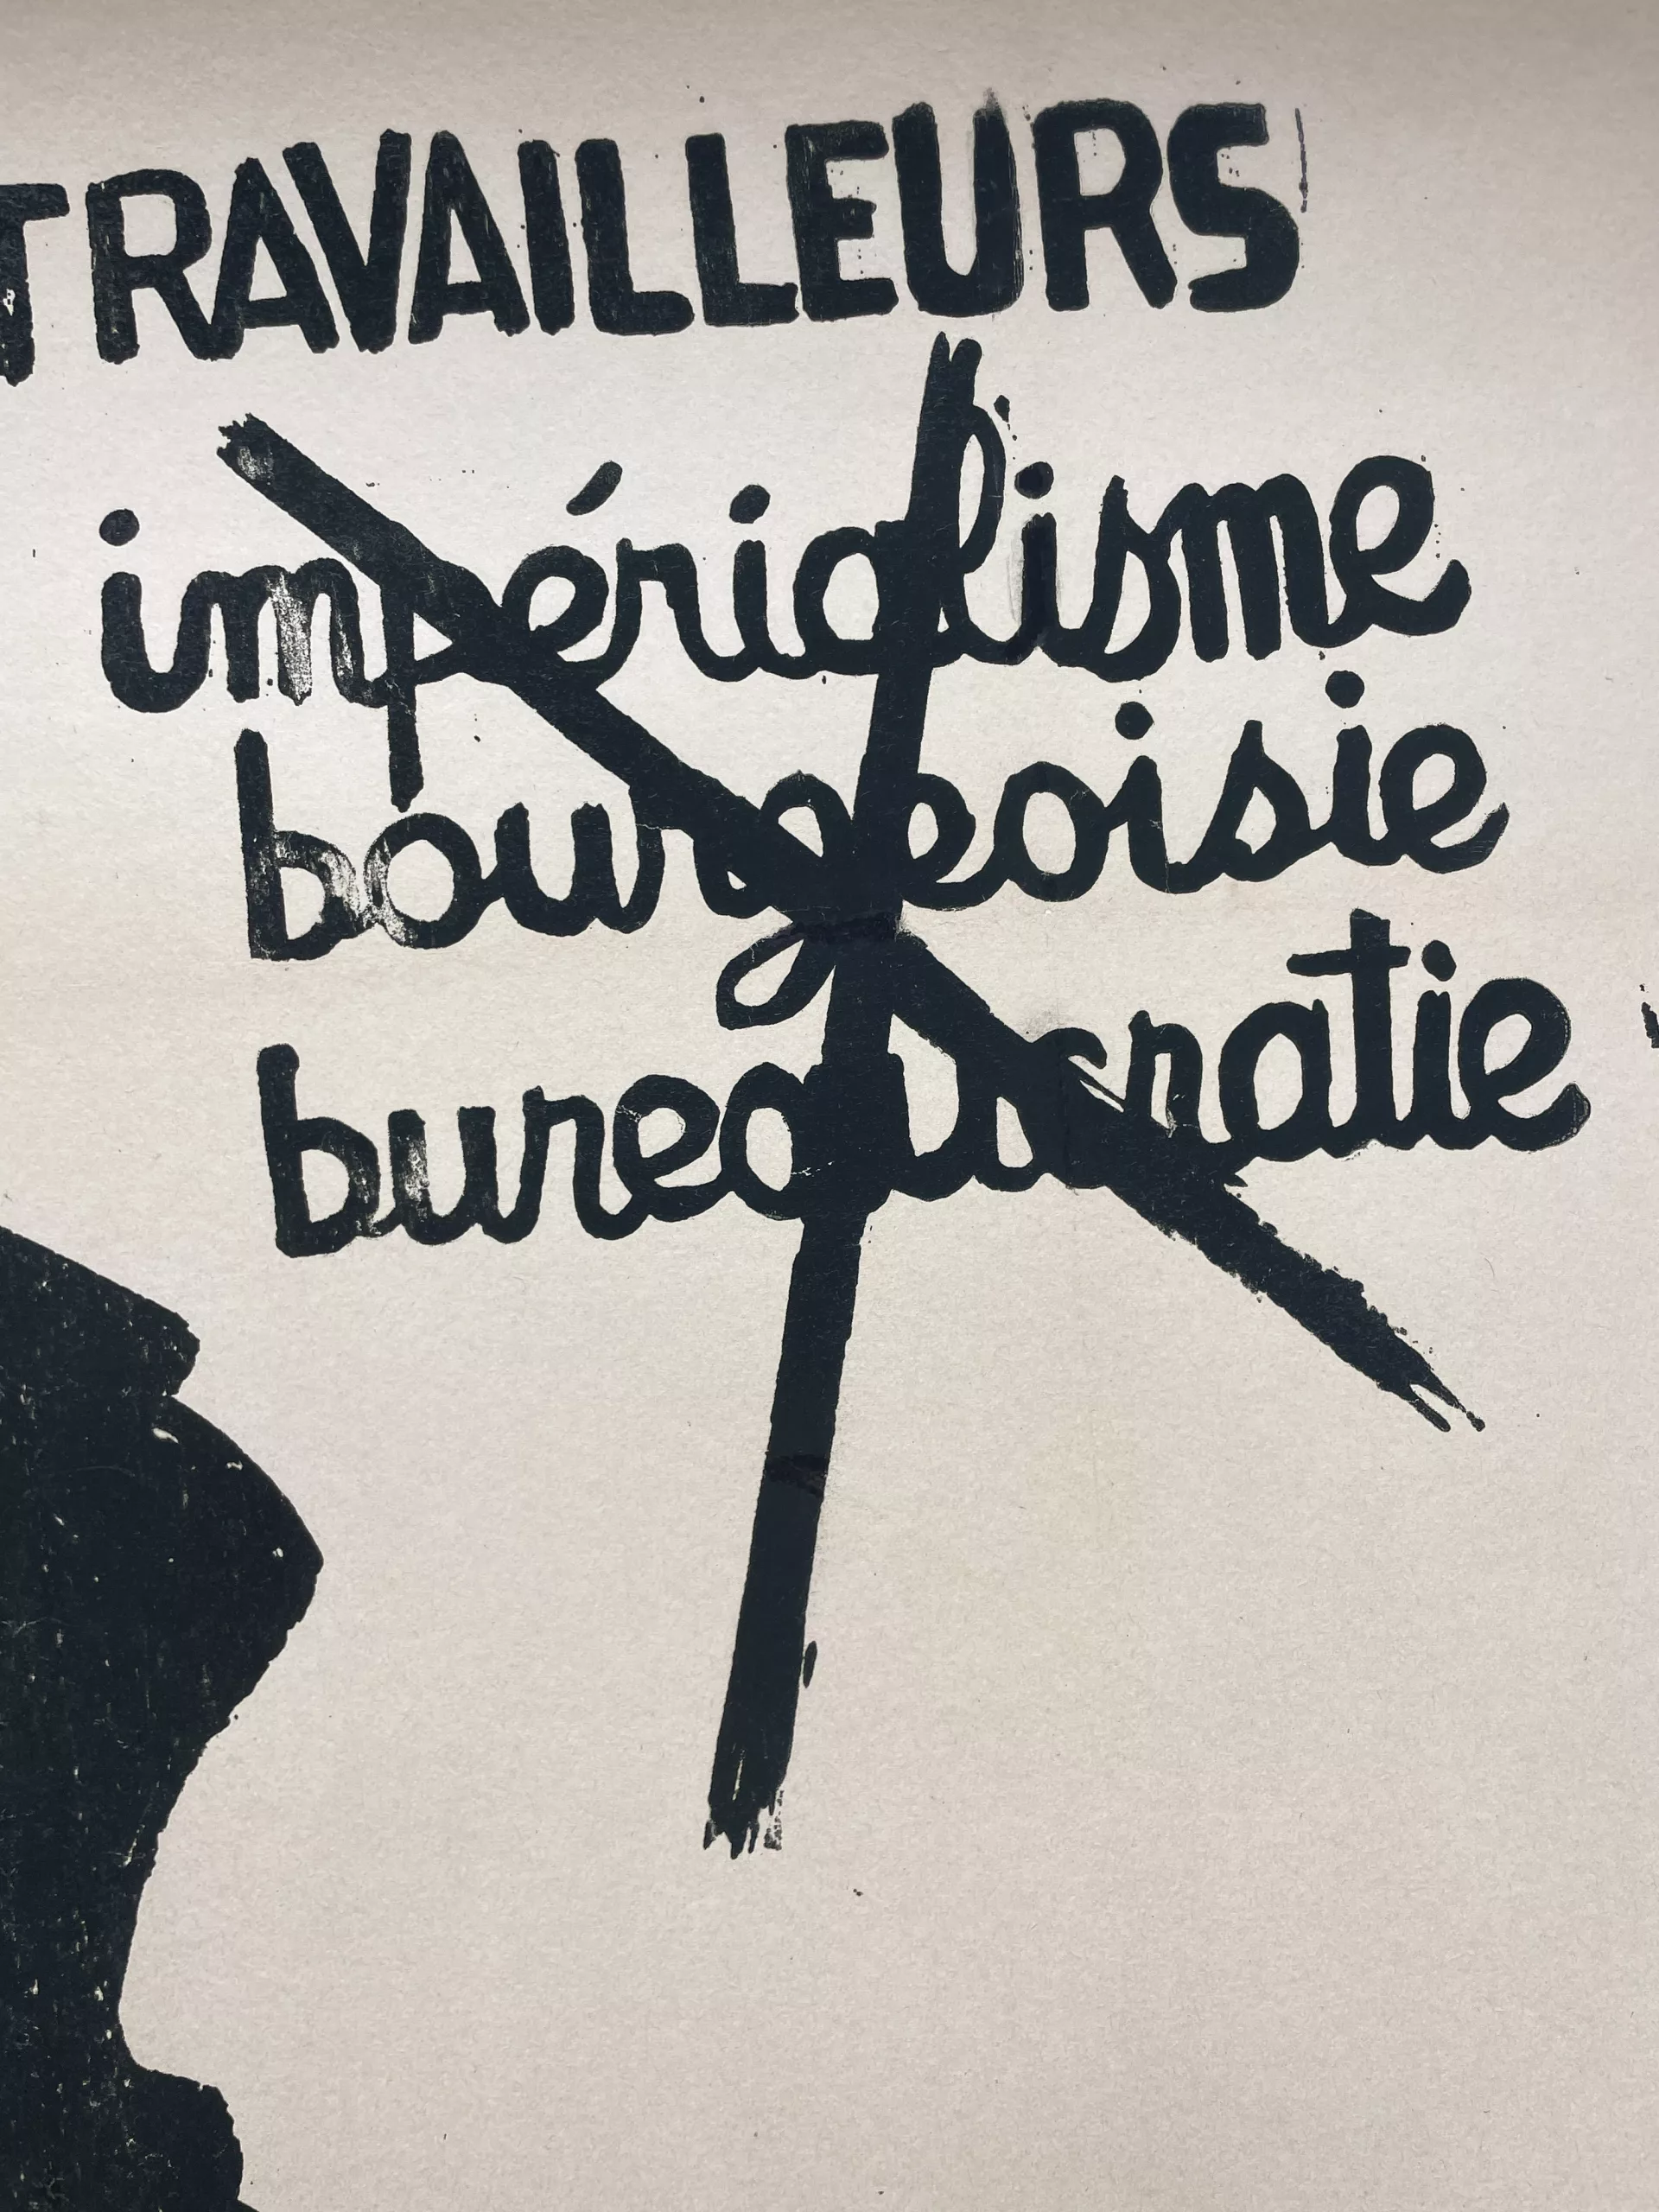 TRAVAILLEURS
impérialisme
bourgeoisie
bureaucratie